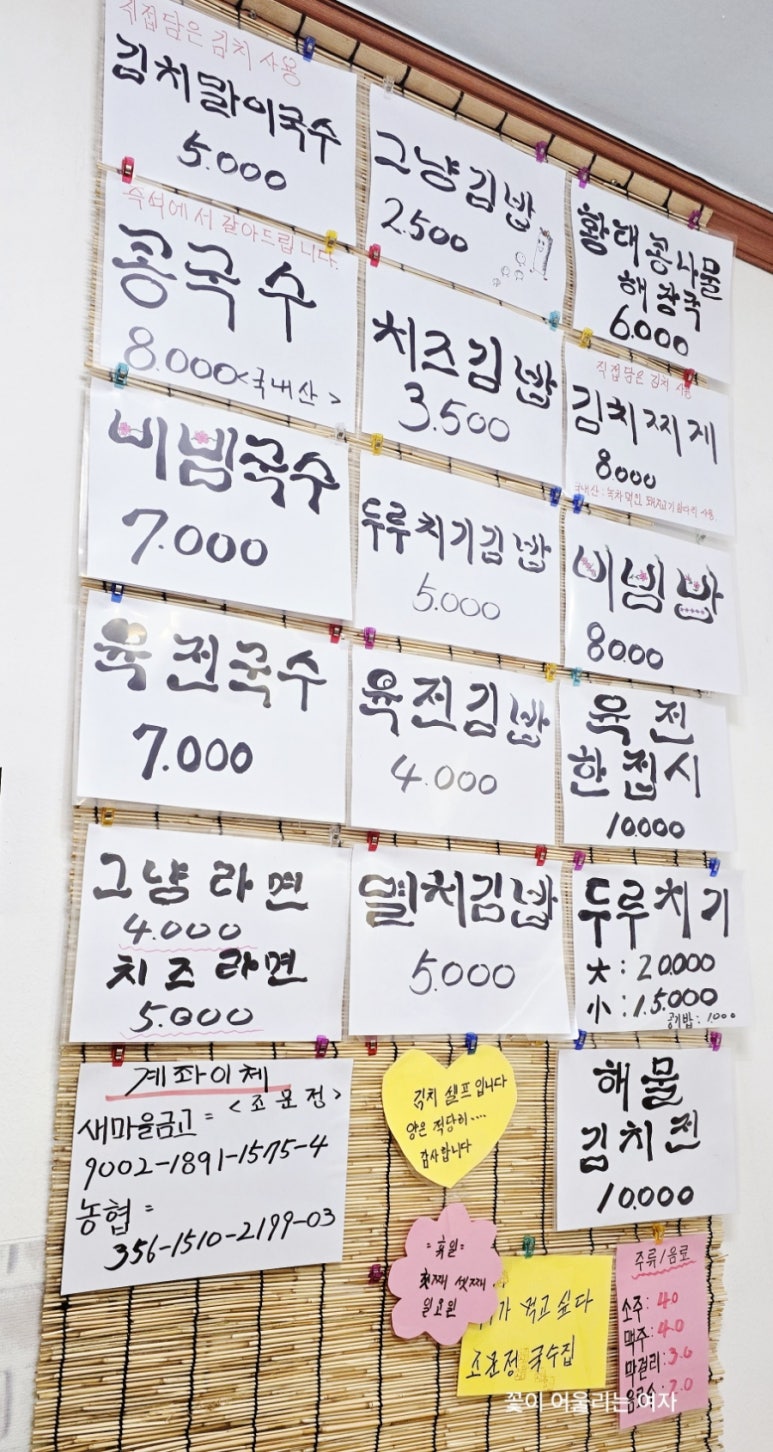 직접담은 김치 사용
김치말이국수
5.000
즉석에서 갈아드립니다.
콩국수
8.000<국내산>
비빔국수
7.000
육전국수
7.000
그냥라면
4.000
치즈라면
5.000
계좌이체
<조문정>
새마을금고=
9002-1891-1575-4
농협=
356-1510-2199-03
그냥김밥
2.500
치즈김밥
3.500
두루치기김밥
5.000
육전김밥
4.000
멸치김밥
5.000
김치 셀프입니다
양은 적당히....
감사합니다
=휴일=
첫째 셋째
월요일
가 먹고싶다
조문정 국수집
황태콩나물
해장국
6.000
직접담은 김치 사용
김치찌게
8.000
국내산:녹차먹인 돼지고기 사용.
비빔밥
8000
육전
한접시
10.000
두루치기
大:20.000
小:15.000
공기밥:1.000
해물
김치전
10.000
주류/음료
소주:4.0
맥주:4.0
막걸리:3.0
음료수:2.0
꽃이 어울리는 여자